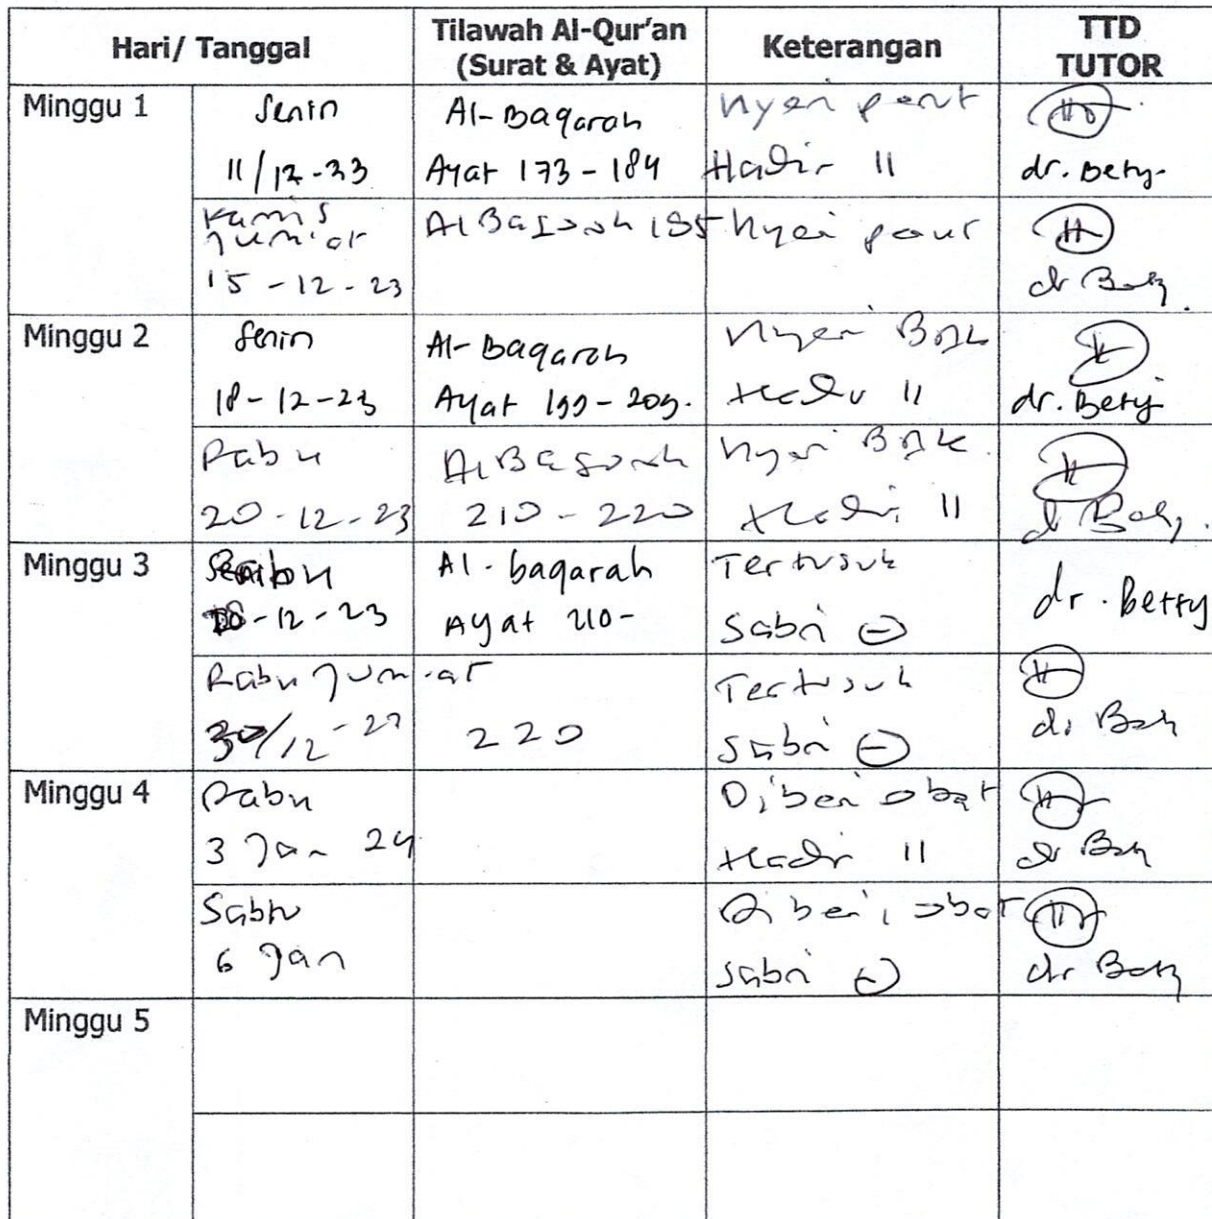 Hari/ Tanggal
Tilawah Al-Qur'an
(Surat & Ayat)
Keterangan
TTD
TUTOR
Minggu 1
Senin
11/12-23
Al-Baqarah
Ayat 173-184
Nyeri perut
Hadir 11
dr. Bety
Kamis
Jum'at
15-12-23
Al Baqarah 185
Nyeri perut
dr Bety
Minggu 2
Senin
18-12-23
Al-Baqarah
Ayat 199-209.
Nyeri BAK
Hadir 11
dr. Bety
Rabu
20-12-23
Al Baqarah
210-220
Nyeri BAK
Hadir 11
dr Bety
Minggu 3
-12-23
Al-baqarah
Ayat 210-
Tertusuk
Sabri (-)
dr. Betty
Rabu Jum'at
30/12-23
220
Tertusuk
Sabri (-)
dr Bety
Minggu 4
Rabu
3 Jan 24
Diberi obat
Hadir 11
dr Bety
Sabtu
6 Jan
Diberi obat
Sabri (-)
dr Bety
Minggu 5